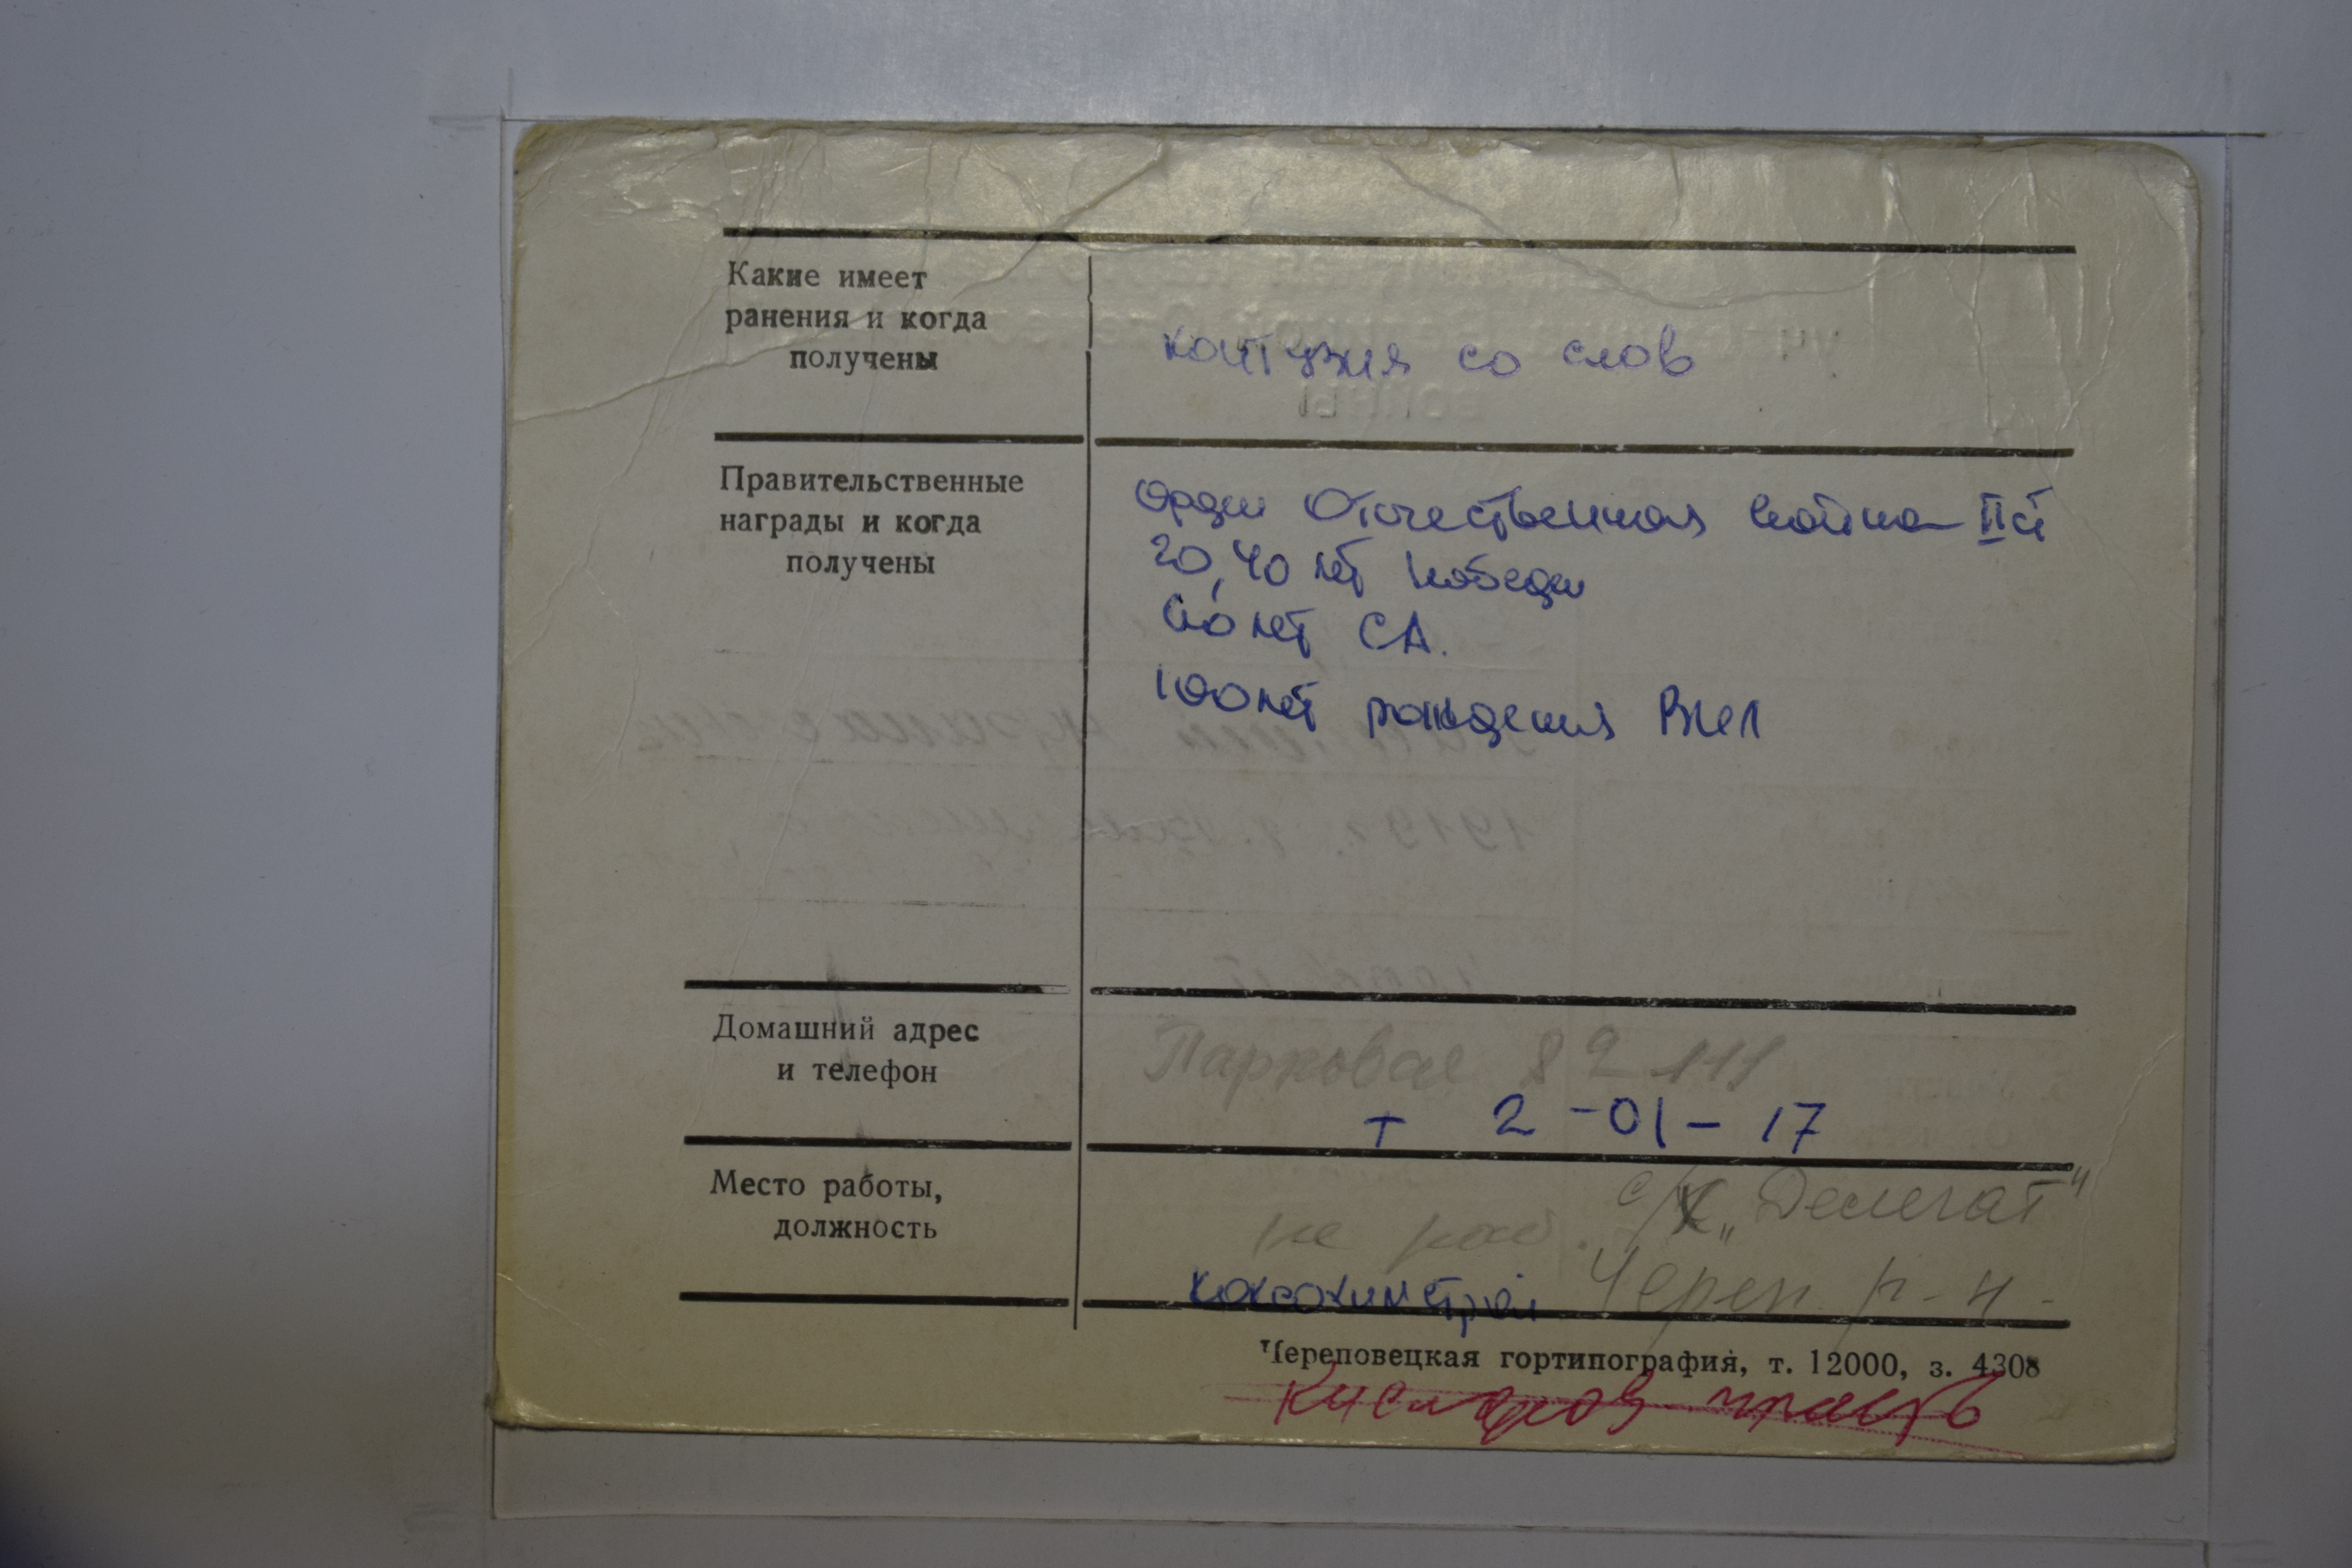 Какие имеет
ранения и когда
получены
контузия со слов
Правительственные
награды и когда
получены
Орден Отечественная война II ст
20, 40 лет Победы
60 лет СА.
100 лет рождения ВИЛ
Домашний адрес
и телефон
Парковая 82 111
т 2-01-17
Место работы,
должность
с/х „Делегат"
не раб.
Череп. р-н.
коксохимстрой
Череповецкая гортипография, т. 12000, з. 4308